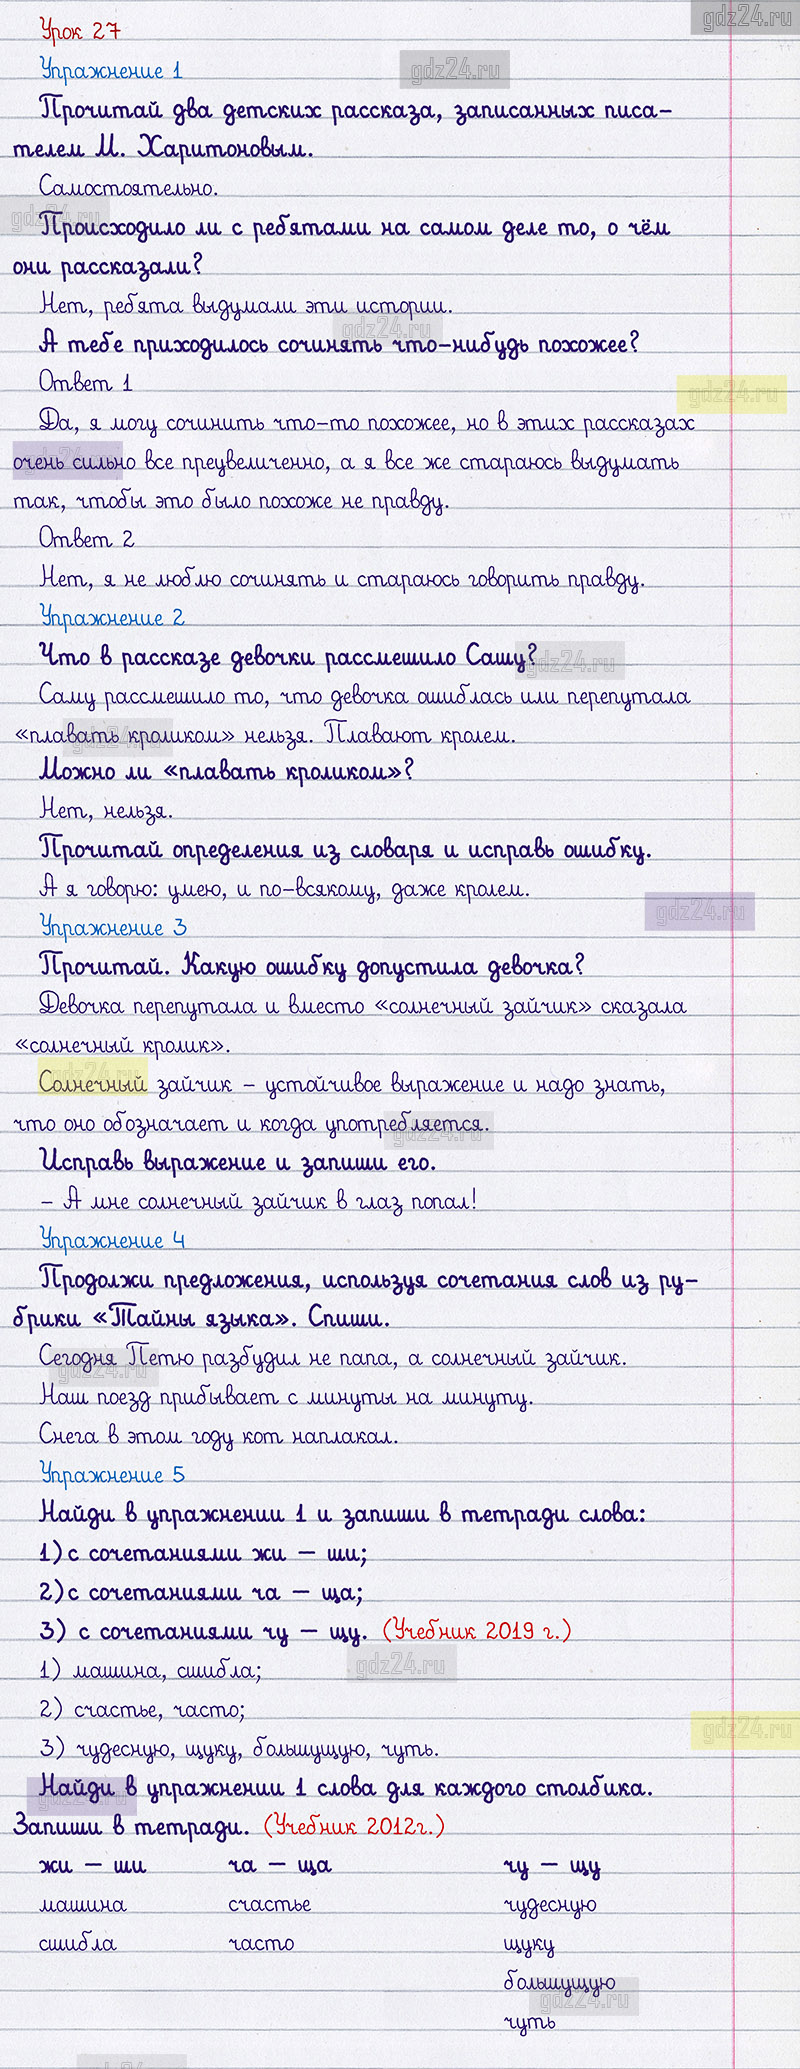 gdz24.ru
Урок 27
Упражнение 1
gdz24.ru
Прочитай два детских рассказа, записанных писа-
телем М. Харитоновым.
Самостоятельно.
gdz24.ru
Происходило ли с ребятами на самом деле то, о чём
они рассказали?
Нет, ребята выдумали эти истории.
gdz24.ru
А тебе приходилось сочинять что-нибудь похожее?
Ответ 1
gdz24.ru
Да, я могу сочинить что-то похожее, но в этих рассказах
очень сильно все преувеличенно, а я все же стараюсь выдумать
gdz24.ru
так, чтобы это было похоже не правду.
Ответ 2
Нет, я не люблю сочинять и стараюсь говорить правду.
Упражнение 2
Что в рассказе девочки рассмешило Сашу?
gdz24.ru
Саму рассмешило то, что девочка ошиблась или перепутала
«плавать кроликом» нельзя. Плавают кролем.
gdz24.ru
Можно ли «плавать кроликом»?
Нет, нельзя.
Прочитай определения из словаря и исправь ошибку.
А я говорю: умею, и по-всякому, даже кролем.
gdz24.ru
Упражнение 3
Прочитай. Какую ошибку допустила девочка?
Девочка перепутала и вместо «солнечный зайчик» сказала
«солнечный кролик».
gdz24.ru
Солнечный зайчик – устойчивое выражение и надо знать,
что оно обозначает и когда употребляется.
gdz24.ru
Исправь выражение и запиши его.
– А мне солнечный зайчик в глаз попал!
Упражнение 4
Продолжи предложения, используя сочетания слов из ру-
брики «Тайны языка». Спиши.
Сегодня Петю разбудил не папа, а солнечный зайчик.
gdz24.ru
Наш поезд прибывает с минуты на минуту.
Снега в этом году кот наплакал.
Упражнение 5
Найди в упражнении 1 и запиши в тетради слова:
1) с сочетаниями жи – ши;
2) с сочетаниями ча – ща;
3) с сочетаниями чу – щу. (Учебник 2019 г.)
1) машина, сшибла;
gdz24.ru
2) счастье, часто;
gdz24.ru
3) чудесную, щуку, большущую, чуть.
Найди в упражнении 1 слова для каждого столбика.
gdz24.ru
Запиши в тетради. (Учебник 2012г.)
жи – ши ча – ща чу – щу
машина счастье чудесную
сшибла часто щуку
большущую
gdz24.ru
чуть